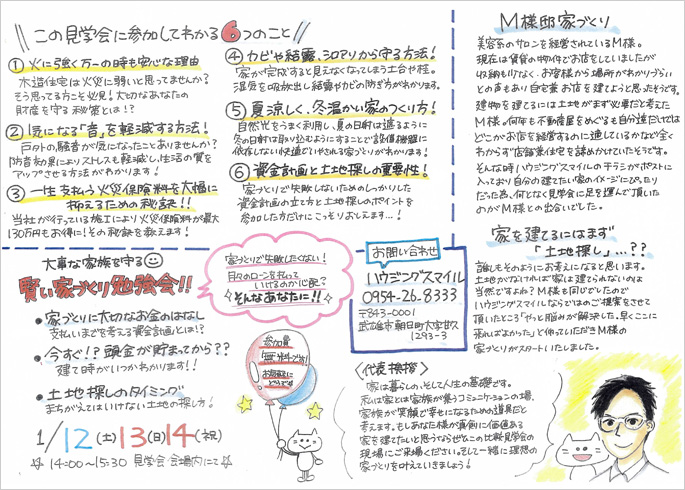 この見学会に参加してわかる6つのこと
① 火に強く万一の時も安心な理由
木造住宅は火災に弱いと思ってませんか?
そう思ってる方こそ必見。大切なあなたの
財産を守る秘策とは!?
② 気になる「音」を軽減する方法!
戸外の騒音が気になったことありませんか?
防音効果によりストレスも軽減し、生活の質を
アップさせる方法がわかります!
③ 一生支払う火災保険料を大幅に
抑えるための秘訣!!
当社が行っている施工により火災保険料が最大
130万もお得に!その秘訣を教えます!
④ カビや結露、シロアリから守る方法!
家が完成すると見えなくなってしまう土台や柱。
湿気を吸放出し結露やカビの防ぎ方がわかります。
⑤ 夏涼しく、冬温かい家のつくり方!
自然光をうまく利用し、夏の日射は遮るように
冬の日射は取り込むようにすることで設備機器に
依存しない快適でいやされる家づくりとがわかります!
⑥ 資金計画と土地探しの重要性!
家づくりで失敗しないためのしっかりした
資金計画の立て方と土地探しのポイントを
参加した方だけにこっそりおしえます…!
M様邸家づくり
美容系のサロンを経営されているM様。
現在は賃貸の物件でお店をしていましたが
収納も少なく、お客様から場所がわかりづらい
との声もあり自宅兼お店を建てようと思ったそうです。
建物を建てるには土地がまず必要だと考えた
M様。何年も不動産をめぐるも自分達だけでは
どこがお店を経営するのに適しているかなど全く
わからず店舗兼住宅を諦めかけていたそうです。
そんな時ハウジングスマイルのチラシがポストに
入っており自分の建てたい家のイメージにぴったり
だった為、何となく見学会に足を運んで頂いた
のがM様との出会いでした。
家を建てるにはまず
「土地探し」…??
誰しもそのようにお考えになると思います。
土地がなければ家は建てられないのは
当然ですよね?M様も同じでしたので
ハウジングスマイルならではのご提案をさせて
頂いたところ「やっと悩みが解決した。早くここに
来ればよかった」と仰っていただきM様の
家づくりがスタートいたしました。
大事な家族を守る
賢い家づくり勉強会!!
• 家づくりに大切なお金のはなし
支払いまでを考える資金計画とは!?
• 今すぐ!?頭金が貯まってから??
建て時がいつかわかります!!
• 土地探しのタイミング
まちがえてはいけない土地の探し方!
1/12(土)13(日)14(祝)
14:00〜15:30 見学会会場内にて
家づくりで失敗したくない!
月々のローンを払って
いけるのか心配?
そんなあなたに!!
参加費
無料です!
お気軽に
どうぞ
お問い合わせ
ハウジングスマイル
0954-26-8333
〒843-0001
武雄市朝日町大字甘久
1293-3
〈代表挨拶〉
家は暮らし、そして人生の基礎です。
私は家とは家族が集うコミュニケーションの場、
家族が笑顔で幸せになるための道具だと
考えます。もしあなた様が真剣に価値ある
家を建てたいと思うならぜひこの比較見学会の
現場にご来場ください。そして一緒に理想の
家づくりを叶えていきましょう!